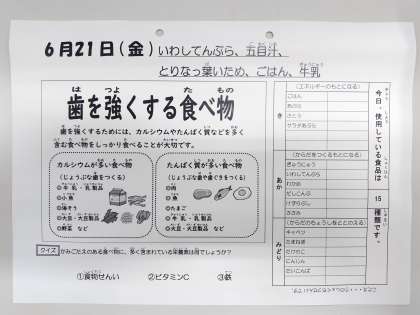 6月21日(金) いわしてんぷら、五目汁、
とりなっ葉いため、ごはん、牛乳
歯を強くする食べ物
は つよ た もの
歯を強くするためには、カルシウムやたんぱく質などを多く
含む食べ物をしっかり食べることが大切です。
カルシウムが多い食べ物
(じょうぶな歯をつくる)
◎牛乳・乳製品
◎小魚
◎海そう
◎大豆・大豆製品
◎野菜 など
たんぱく質が多い食べ物
(じょうぶな歯や歯ぐきをつくる)
◎肉
◎魚
◎たまご
◎牛乳・乳製品
◎大豆・大豆製品 など
クイズ かみごたえのある食べ物に、多く含まれている栄養素は何でしょうか?
①食物せんい ②ビタミンC ③鉄
今日、使用している食品は 15 種類です。
き
(エネルギーのもとになる)
ごはん
あぶら
さとう
サラダあぶら
あか
(からだをつくるもとになる)
ぎゅうにゅう
いわし
わかめ
とうふ
ささみ
みどり
(からだのちょうしをととのえる)
キャベツ
たまねぎ
たけのこ
にんじん
だいこんば